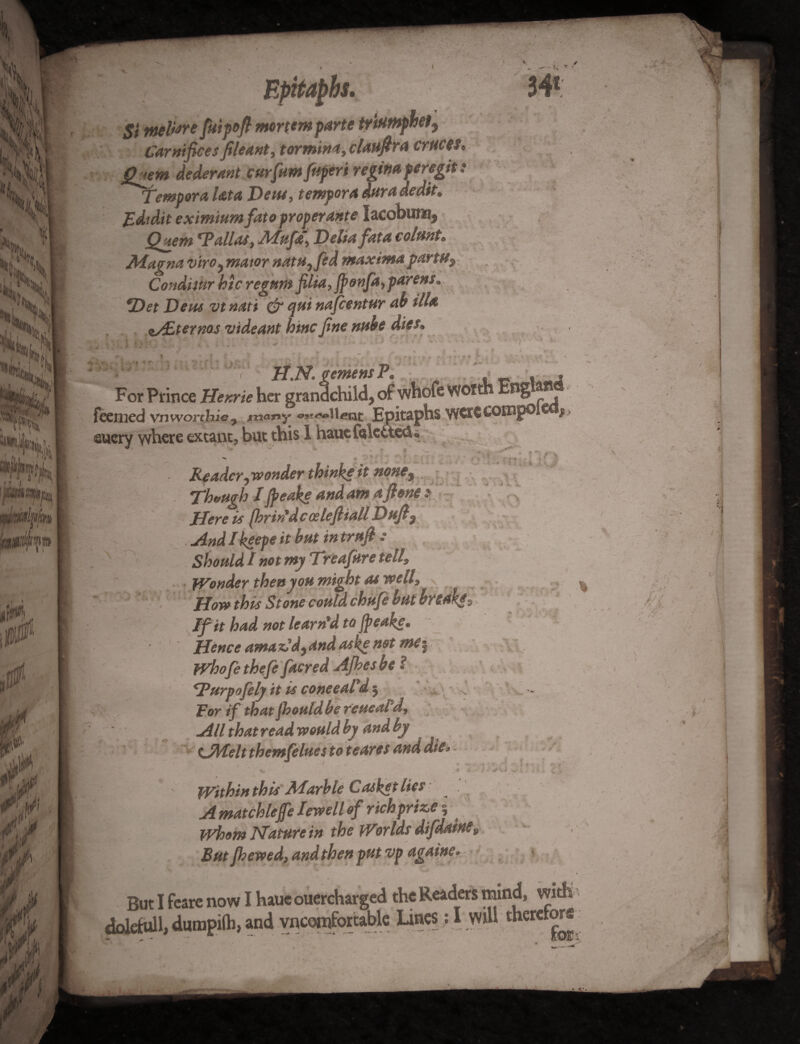 Epitaphs. 341
Si meliore fui post mortem parte triumphet,
Carnifices sileant, tormina, claustra cruces.
Quem dederant cursum superi regina peregit:
Tempora læta Deus, tempora dura dedit.
Edidit eximium fato properante Iacobum,
Quem Pallas, Musæ, Delia fata colunt.
Magna viro, maior natu, sed maxima partu,
Conditur hic regum filia, sponsa, parens.
Det Deus vt nati & qui nascentur ab illa
Æternos videant hinc sine nube dies.
H.N. gemens P.
For Prince Henrie her grandchild, of whose worth England
seemed vnworthie, many excellent Epitaphs were composed,
euery where extant, but this I haue selected.
Reader, wonder thinke it none,
Though I speake and am a stone:
Here is shrin'd cœlestiall Dust,
And I keepe it but in trust:
Should I not my Treasure tell,
Wonder then you might as well,
How this Stone could chuse but breake,
If it had not learn'd to speake.
Hence amaz'd, and aske not me;
Whose these sacred Ashes be?
Purposely it is conceal'd;
For if that should be reueal'd,
All that read would by and by
Melt themselues to teares and die.
Within this Marble Casket lies
A matchlesse Iewell of rich prize;
Whom Nature in the Worlds disdaine,
But shewed, and then put vp againe.
But I feare now I haue ouercharged the Readers mind, with
dolefull, dumpish, and vncomfortable Lines: I will therefore
for